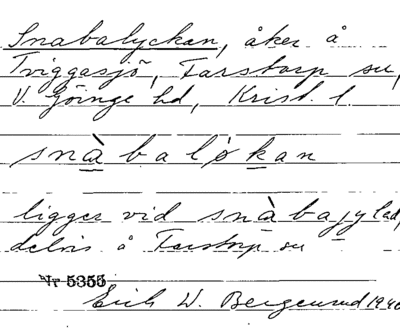 Snabalyckan, åker å
Tviggasjö, Farstorp sn,
V. Göinge hd, Krist. l.
snàbaløkan
ligger vid snàbajylad,
delvis å Farstorp sn
Nr 5355
Erik W. Bergenrud 1940